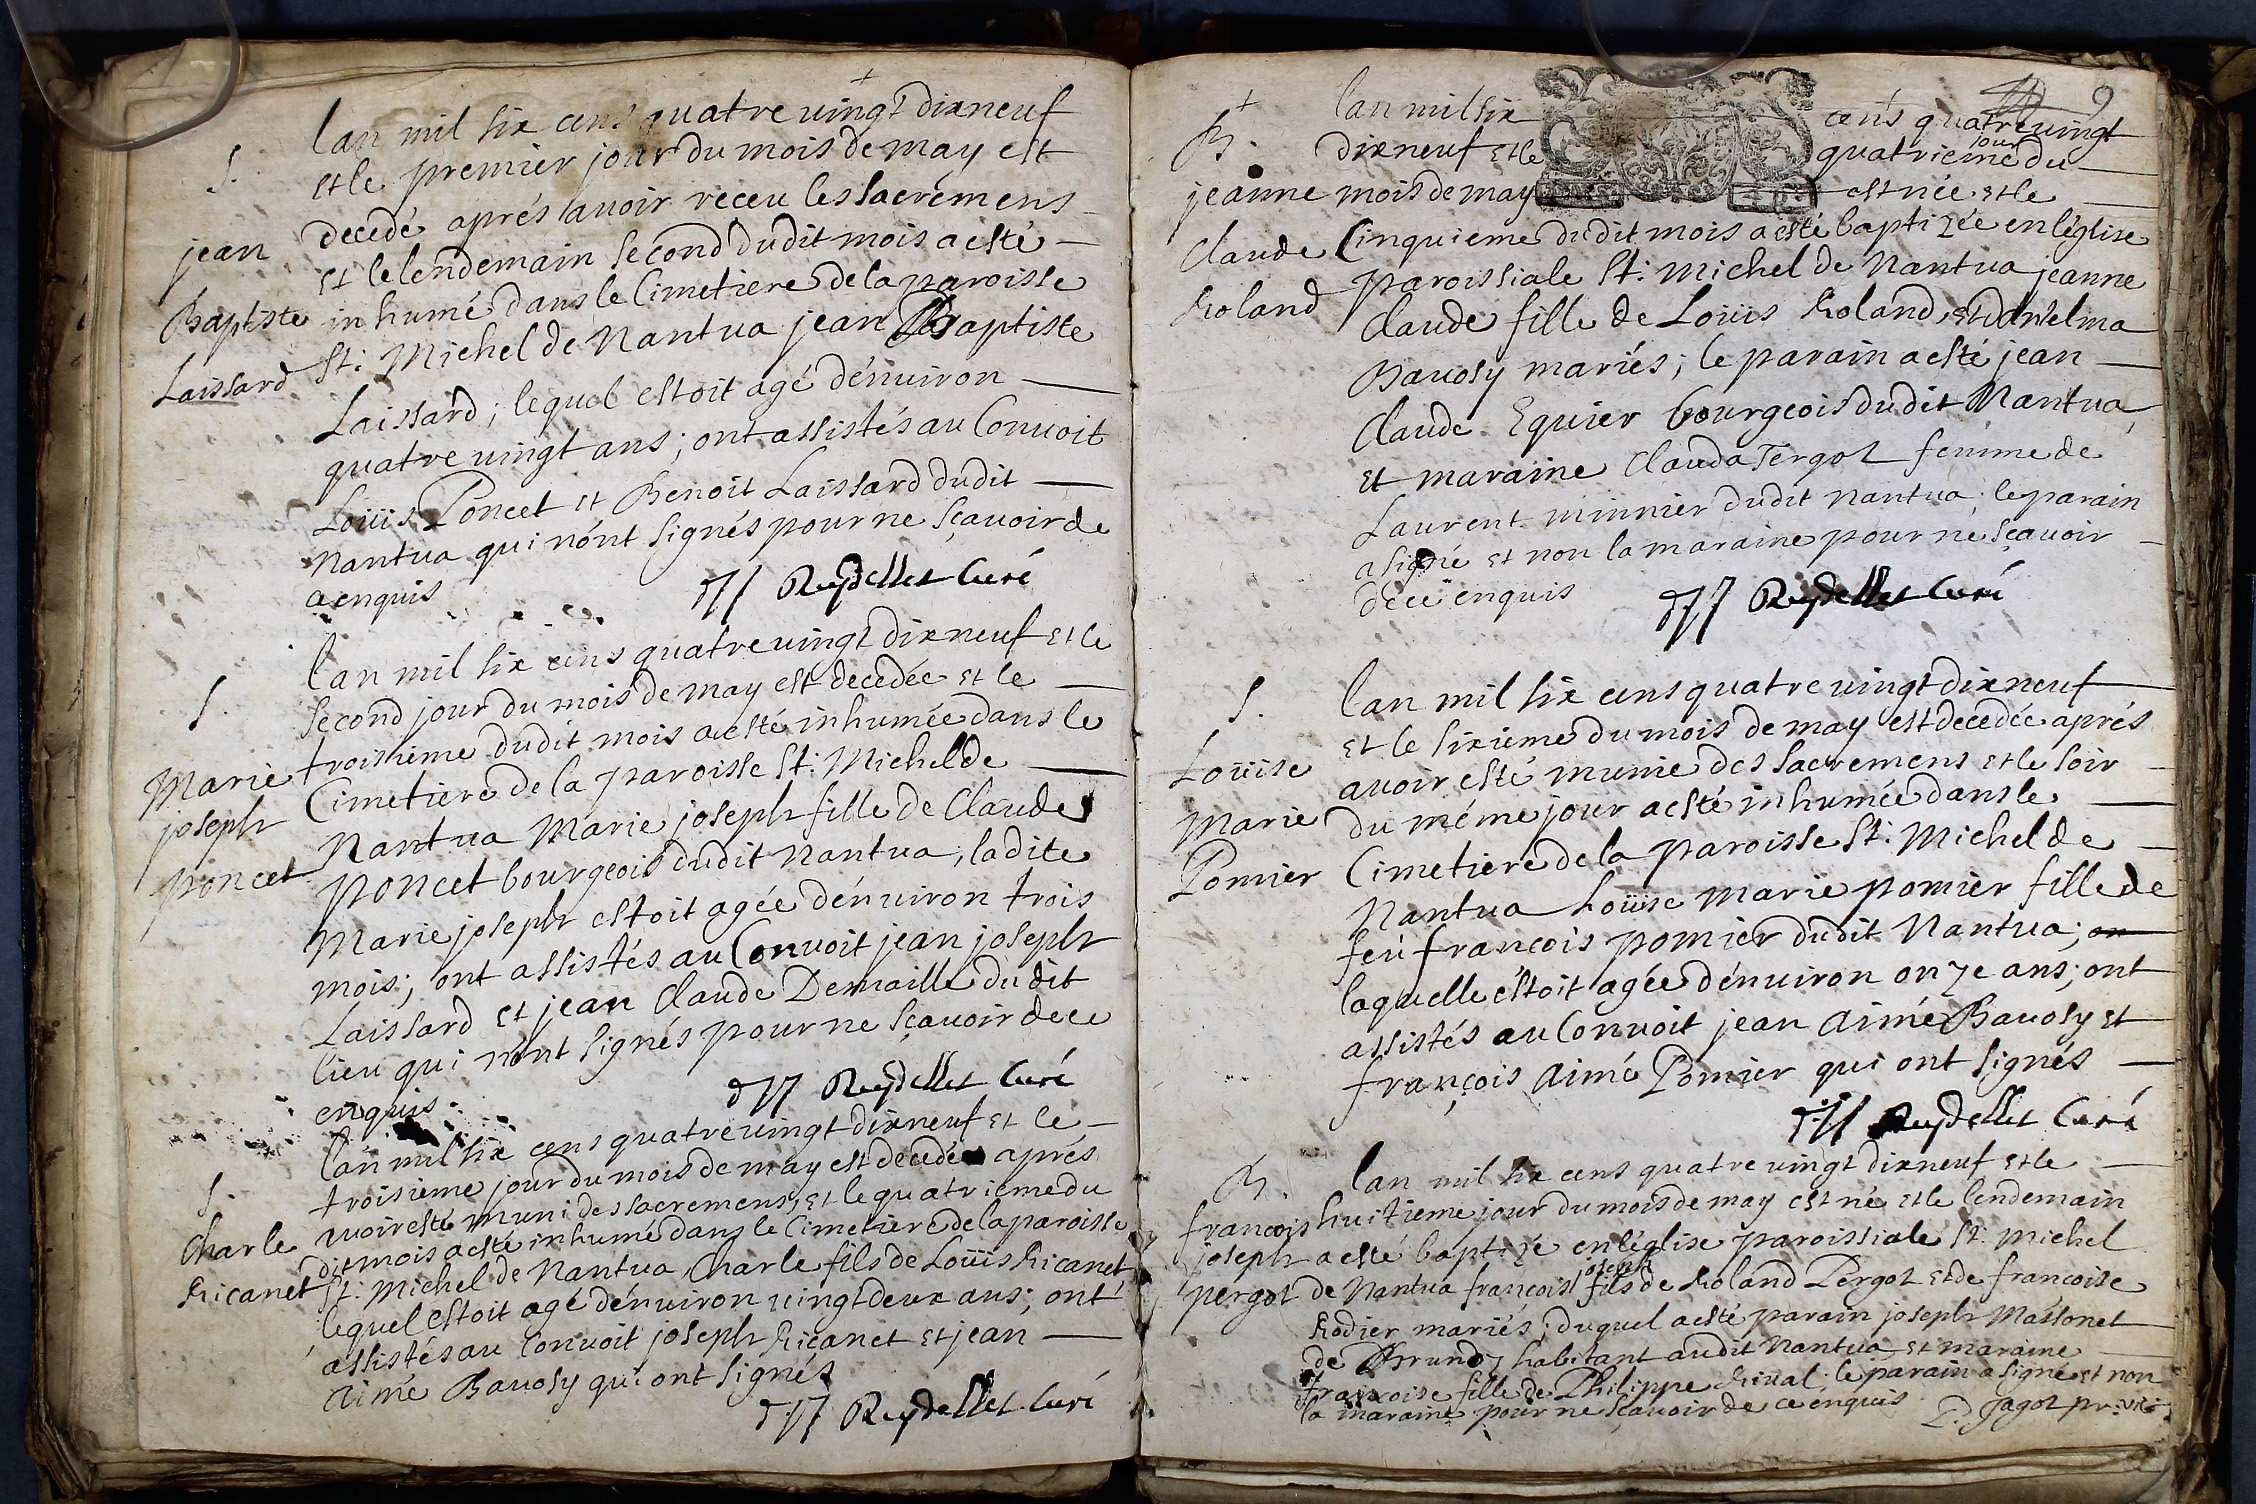 S.
jean
Baptiste
Laissard
lan mil six cens quatre vingt dixneuf
et le premier jour du mois de may est
decedé aprés avoir receu les sacremens
et le lendemain second dudit mois a esté
inhumé dans le Cimetiere de la paroisse
St: Michel de Nantua jean Baptiste
Laissard; lequel estoit agé dénuiron
quatre vingt ans; ont assistés au Conuoit
Loüis Poncet et Benoit Laissard dudit
Nantua qui nónt signés pour ne sçauoir de
a enquis
Reydellet Curé
S.
Marie
joseph
poncet
lan mil six cens quatre vingt dixneuf et le
second jour du mois de may est decedée et le
troisieme dudit mois a esté inhumée dans le
Cimetiere de la paroisse St: Michel de
Nantua Marie joseph fille de Claude
poncet bourgeois dudit Nantua, ladite
Marie joseph estoit agée dénuiron trois
mois; ont assistés au Conuoit jean joseph
Laissard et jean Claude Demaille dudit
lieu qui nónt signés pour ne sçauoir de ce
enquis
Reydellet Curé
S.
Charle
Ricanet
lan mil six cens quatre vingt dixneuf et le
troisieme jour du mois de may est decedé aprés
auoir esté muni des sacremens, et le quatrieme du
dit mois a esté inhumé dans le Cimetiere de la paroisse
St: Michel de Nantua, Charle fils de Loüis Ricanet
lequel estoit agé dénuiron vingt deux ans; ont
assistés au Conuoit joseph Ricanet et jean
Aimé Bauosy qui ont signés
Reydellet Curé
9
B.
jeanne
Claude
Roland
lan mil six cens quatre vingt
dixneuf et le quatrieme jour du
mois de may est née et le
Cinquieme dudit mois a esté baptizée en léglise
paroissiale St: Michel de Nantua jeanne
Claude fille de Loüis Roland, et dAnselma
Bauosy mariés; le parain a esté jean
Claude Equier bourgeois dudit Nantua,
et maraine Clauda Pergoz femme de
Laurent minnier dudit Nantua; le parain
a signé et non la maraine pour ne sçauoir
de ce enquis
Reydellet Curé
S.
Loüise
Marie
Pomier
lan mil six cens quatre vingt dixneuf
et le sixieme du mois de may est decedée aprés
auoir esté munie des sacremens et le soir
du méme jour a esté inhumée dans le
Cimetiere de la paroisse St: Michel de
Nantua Loüise Marie pomier fille de
feu françois pomier dudit Nantua; on
laquelle estoit agée dénuiron onze ans; ont
assistés au Conuoit jean Aimé Bauosy et
françois Aimé Pomier qui ont signés
Reydellet Curé
B.
francois
joseph
pergoz
lan mil six cens quatre vingt dixneuf et le
huitieme jour du mois de may est né et le lendemain
a esté baptizé en léglise paroissiale St: Michel
de Nantua françois joseph fils de Roland Pergoz et de francoise
Rodier mariés; duquel a esté parain joseph Massonet
de habitant audit Nantua, et maraine
francoise fille de Philippe Riual; le parain a signé et non
la maraine pour ne sçauoir de ce enquis P. Jagoz